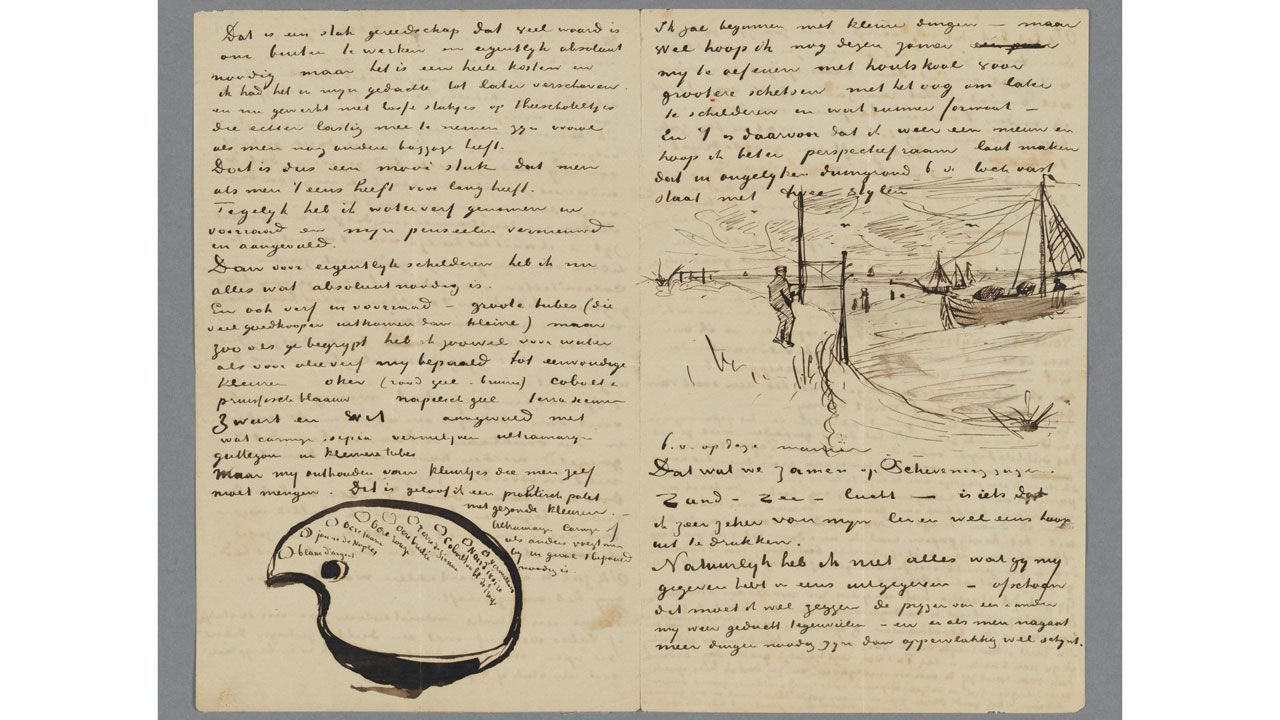 Dat is een stuk gereedschap dat veel waard is
om buiten te werken en eigentlyk absoluut
noodig maar het is een heele kosten en
ik had het in myn gedachte tot later verschoven.
en nu gewerkt met losse stukjes op theeschoteltjes
die echter lastig mee te nemen zyn vooral
als men nog andere baggage heeft.
Dat is dus een mooi stuk dat men
als men 't eens heeft voor lang heeft.
Tegelyk heb ik waterverf genomen en
voorraad en myn penseelen vernieuwd
en aangevuld.
Dan voor eigentlyk schilderen heb ik nu
alles wat absoluut noodig is.
En ook verf in voorraad – groote tubes (die
veel goedkooper uitkomen dan kleine) maar
zoo als ge begrypt heb ik zoowel voor water
als voor olieverf my bepaald tot eenvoudige
kleuren oker (rood geel - bruin) cobolt &
pruissisch blaauw napelsch geel terra sienna
Zwart en Wit aangevuld met
wat carmyn sepia vermiljoen ultramaryn
guttegom in kleinere tubes
Maar my onthouden van kleurtjes die men zelf
moet mengen. Dit is geloof ik een praktisch palet
met gezonde kleuren. –
Ultramaryn Carmyn of
als anders voegt men
by in geval 't bepaald
noodig is.
blanc d'argent
jaune de Naples
ocre jaune
ocre rouge
ocre brulée
Terre de Sienne
Cobalt
Noir d'ivoire
vermillon
Ik zal beginnen met kleine dingen – maar
wel hoop ik nog dezen zomer
my te oefenen met houtskool voor
grootere schetsen met het oog om later
te schilderen in wat ruimer formaat –
En 't is daarvoor dat ik weer een nieuw en
hoop ik beter perspectiefraam laat maken
dat in ongelyken duingrond b.v. toch vast
staat met twee stylen
b.v. op deze manier
Dat wat we zamen op Schevening zagen.
Zand – Zee – lucht – is iets dat
ik zeer zeker van myn leven wel eens hoop
uit te drukken.
Natuurlyk heb ik niet alles wat gy my
gegeven hebt in eens uitgegeven – ofschoon
dit moet ik wel zeggen de pryzen van een en ander
my weer geducht tegenvielen – en er als men nagaat
meer dingen noodig zyn dan oppervlakkig wel schynt.